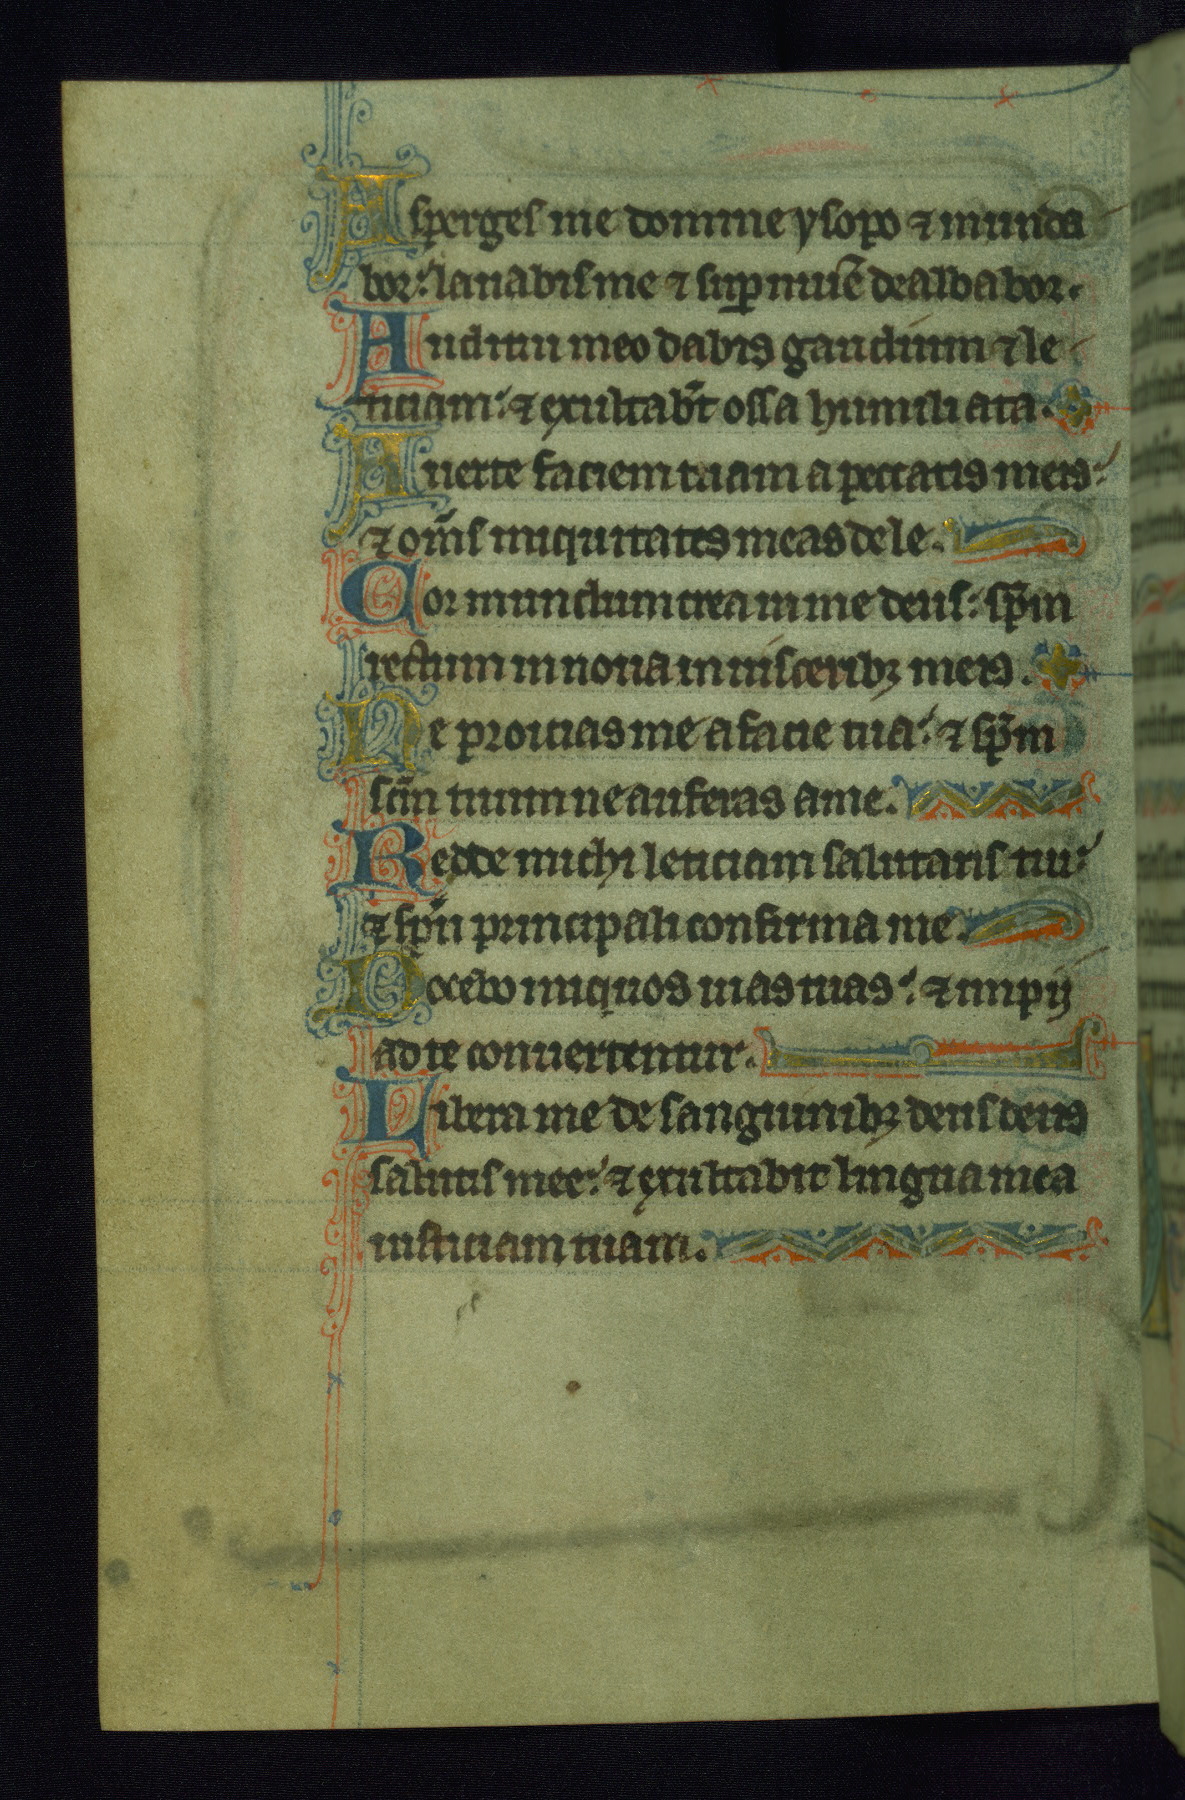 Asperges me domine ysopo ⁊ munda
bor: lanabis me ⁊ sup niuē dealbabor.
Auditui meo dabis gaudium ⁊ le
ticiam: ⁊ exultabt̄ ossa humiliata.
Auerte faciem tuam a peccatis meis:
⁊ om̄s iniquitates meas dele.
Cor mundum crea in me deus: sp̄m
rectum innoua in uisceribꝫ meis.
Ne proicias me a facie tua: ⁊ sp̄m
sc̄m tuum ne auferas a me.
Redde michi leticiam salutaris tui:
⁊ sp̄u principali confirma me.
Docebo iniquos uias tuas: ⁊ impij
ad te conuertentur.
Libera me de sanguinibꝫ deus deus
salutis mee: ⁊ exultabit lingua mea
iusticiam tuam.